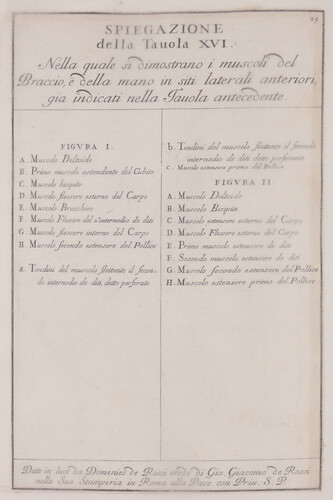 69
SPIEGAZIONE
della Tauola XVI.
Nella quale si dimostrano i muscoli del
Braccio, e della mano in siti laterali anteriori,
gia indicati nella Tauola antecedente.
FIGVRA I.
A. Muscolo Deltoide
B. Primo muscolo estendente del Cubito
C. Muscolo bicipite
D. Muscolo flessore esterno del Carpo
E. Muscolo Bracchieo
F. Muscolo Flessore del 2º internodio de diti
G. Muscolo flessore interno del Carpo
H. Muscolo secondo estensore del Pollice
a. Tendini del muscolo flettente il secon-
do internodio de diti, detto perforato
b. Tendini del muscolo flettente il secondo
internodio de diti, detto perforante
C. Muscolo estensore primo del Pollice
FIGVRA II
A. Muscolo Deltoide
B. Muscolo Bicipite
C. Muscolo estensore esterno del Carpo
D. Muscolo Flessore esterno del Carpo
E. Primo muscolo estensore de diti
F. Secondo muscolo estensore de diti
G. Muscolo secondo estensore del Pollice
H. Muscolo estensore primo del Pollice
Date in luce da Domenico de Rossi erede di Gio. Giacomo de Rossi
nella Sua Stamperia in Roma alla Pace con Priu. S. P.